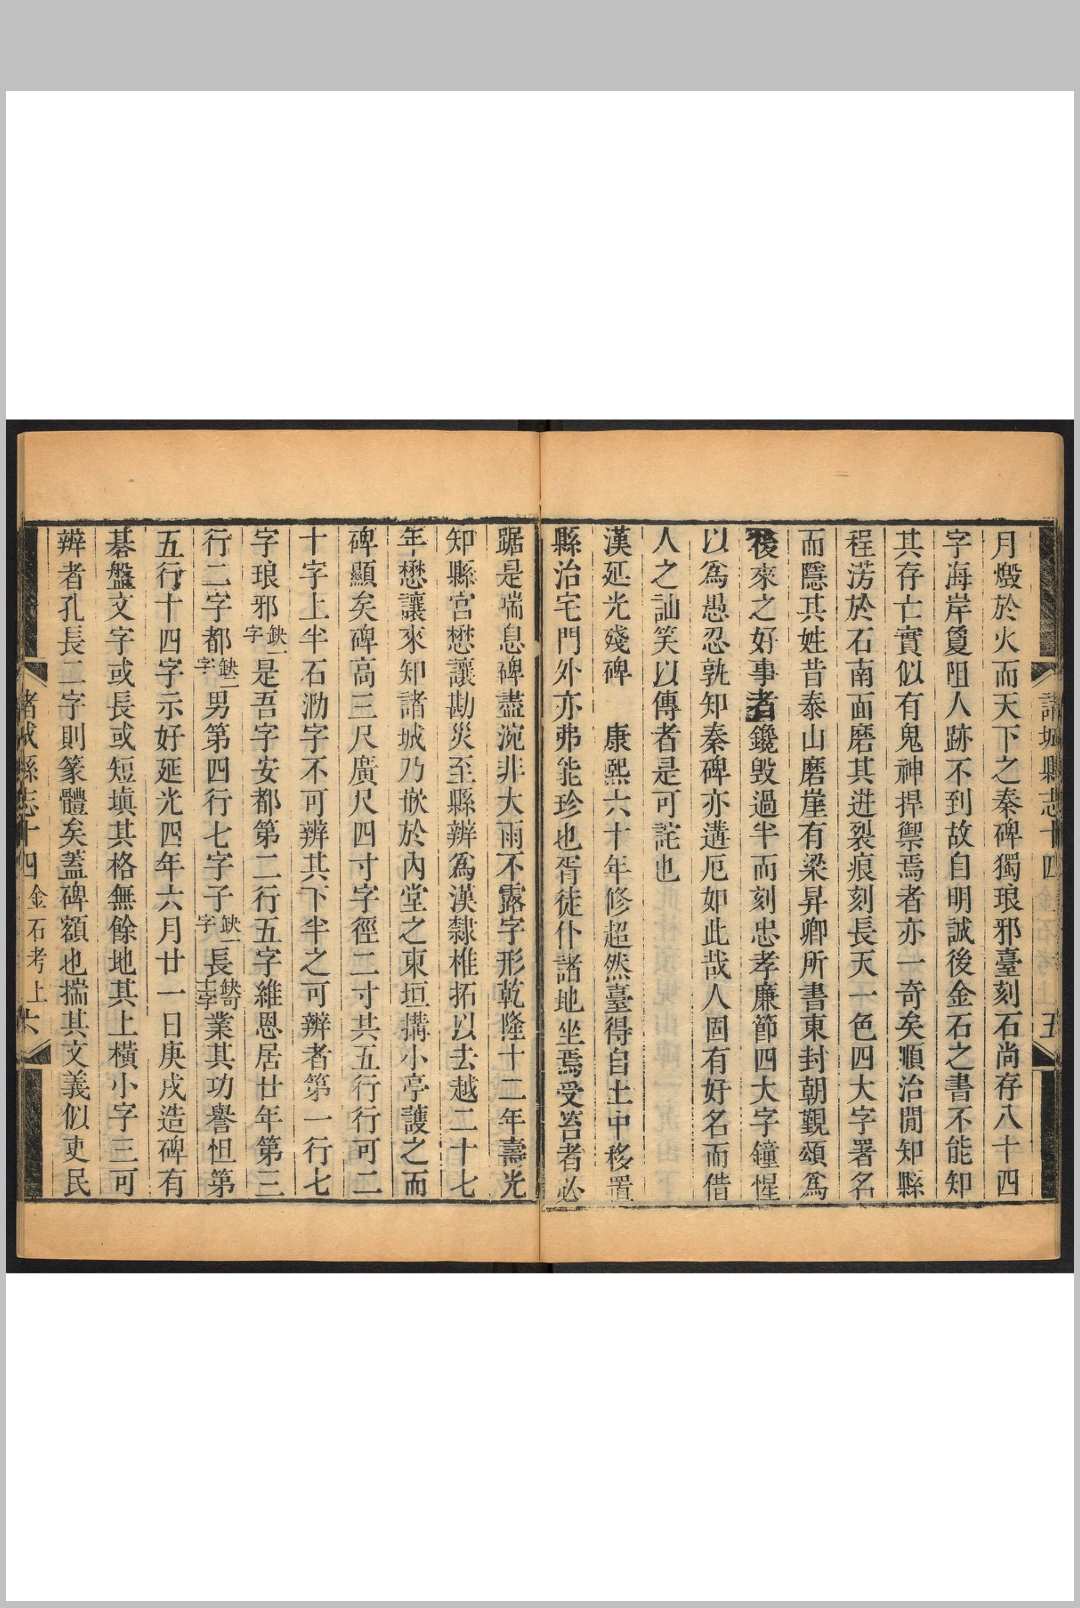 諸城縣志十四
五
月燬於火而天下之秦碑獨琅邪臺刻石尚存八十四
字海岸敻阻人跡不到故自明誠後金石之書不能知
其存亡實似有鬼神捍禦焉者亦一奇矣順治閒知縣
程淓於石南面磨其迸裂痕刻長天一色四大字署名
而隱其姓昔泰山磨崖有梁昇卿所書東封朝覲頌爲
後來之好事者鑱毁過半而刻忠孝廉節四大字鐘惺
以爲愚忍孰知秦碑亦遘厄如此哉人固有好名而借
人之訕笑以傳者是可詫也
漢延光殘碑　康熙六十年修超然臺得自土中移置
縣治宅門外亦弗能珍也胥徒仆諸地坐焉受笞者必
踞是喘息碑盡涴非大雨不露字形乾隆十二年壽光
知縣宮懋讓勘災至縣辨爲漢隸椎拓以去越二十七
年懋讓來知諸城乃嵌於內堂之東垣搆小亭護之而
碑顯矣碑高三尺廣尺四寸字徑二寸共五行行可二
十字上半石泐字不可辨其下半之可辨者第一行七
字琅邪缺一字是吾字安都第二行五字維恩居廿年第三
行二字都缺一字男第四行七字子缺一字長缺十字業其功譽怛第
五行十四字示好延光四年六月廿一日庚戌造碑有
碁盤文字或長或短塡其格無餘地其上橫小字三可
辨者孔長二字則篆體矣蓋碑額也揣其文義似吏民
諸城縣志十四
金石考上
六